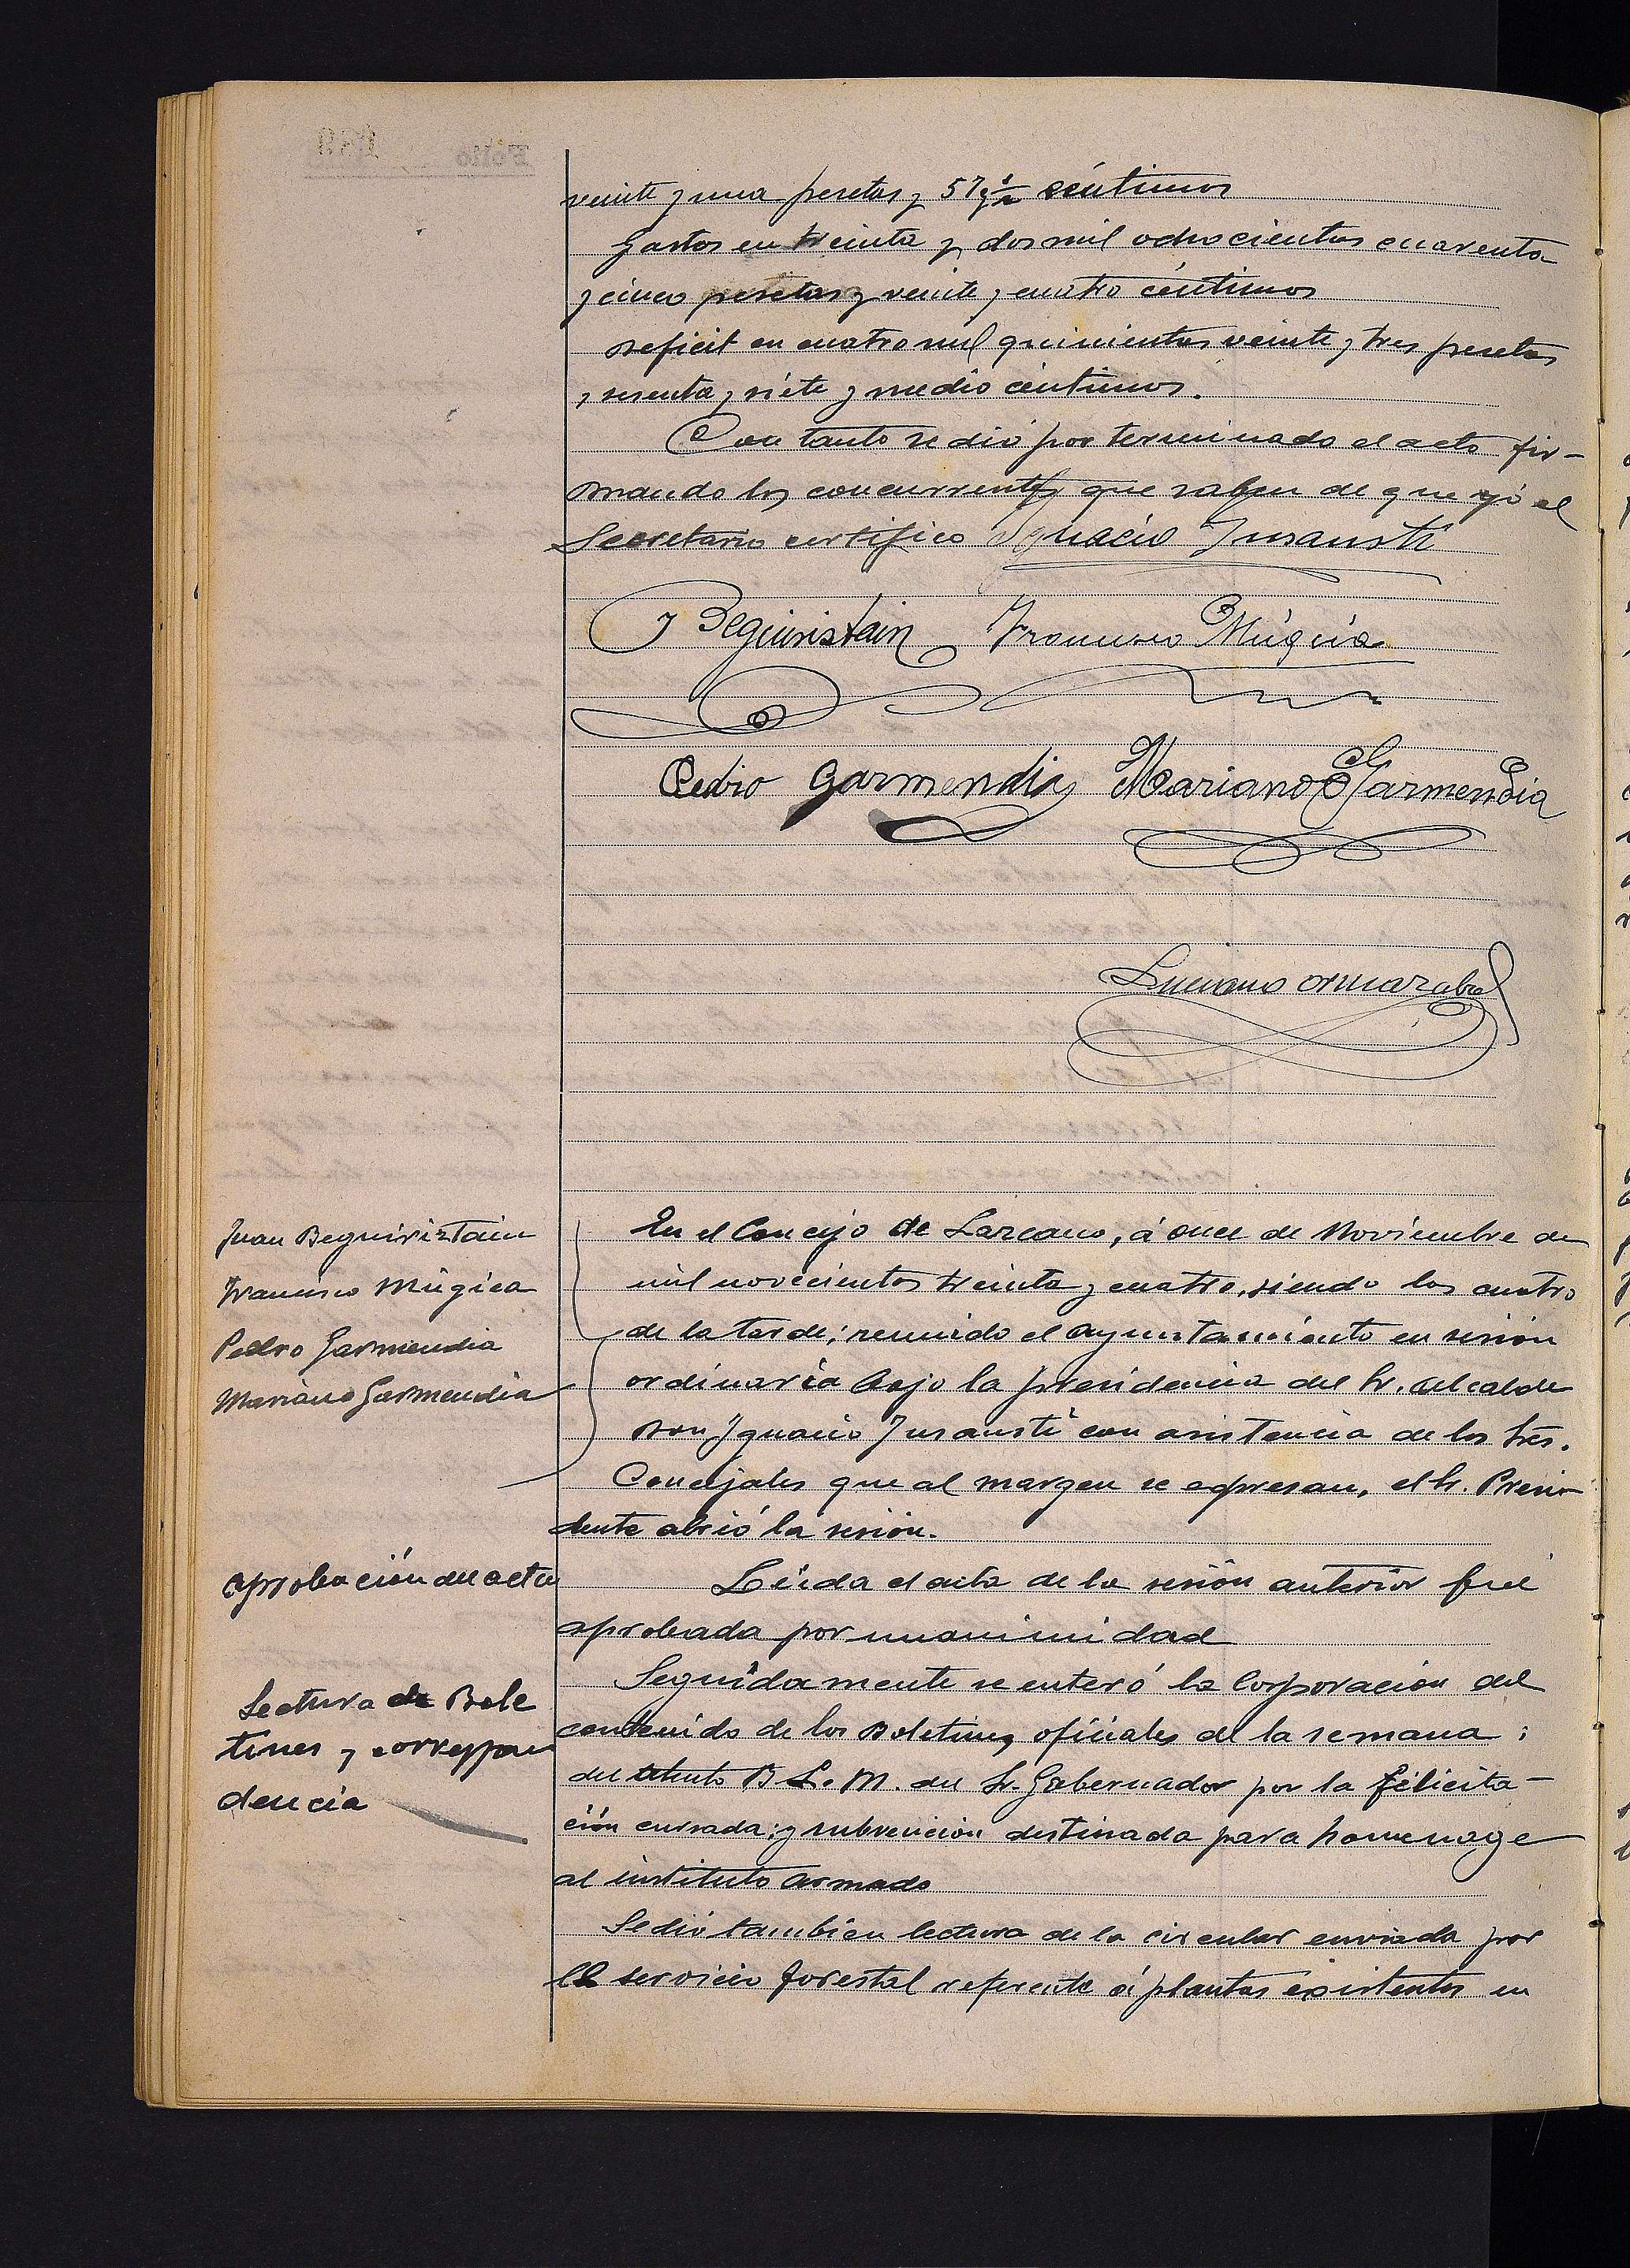 veinte y una pesetas y 57 y ½ céntimos
Gastos en treinta y dos mil ochocientas cuarenta
y cinco pesetas y veinte y cuatro céntimos
Deficit en cuatro mil quinientas veinte y tres pesetas
y sesenta y siete y medio céntimos.
Con tanto se dió por terminado el acto fir-
mando los concurrentes que saben de que yó el
Secretario certifico Ignacio Insausti
J Beguiristain Francisco Múgica
Pedro Garmendia Mariano Garmendia
Luciano
Juan Beguiristain
Francisco Múgica
Pedro Garmendia
Mariano Garmendia
En el Concejo de Lazcano, á once de Noviembre de
mil novecientos treinta y cuatro, siendo las cuatro
de la tarde; reunido el Ayuntamiento en sesión
ordinaria bajo la presidencia del Sr. Alcalde
Don Ignacio Insausti con asistencia de los Srés.
Concejales que al margen se expresan, el Sr. Presi-
dente abrió la sesión.
Aprobación del acta
Léida el acta de la sesión anterior fué
aprobada por unanimidad
Lectura de Bole
tines y correspon
dencia
Seguidamente se enteró la Corporación del
contenido de los Boletines oficiales de la semana;
del atento B.L.M. del Sr. Gobernador por la felicita-
ción cursada; y subvención destinada para homenage
al instituto armado
Se dió también lectura de la circular enviada por
el servicio forestal referente á plantas existentes en